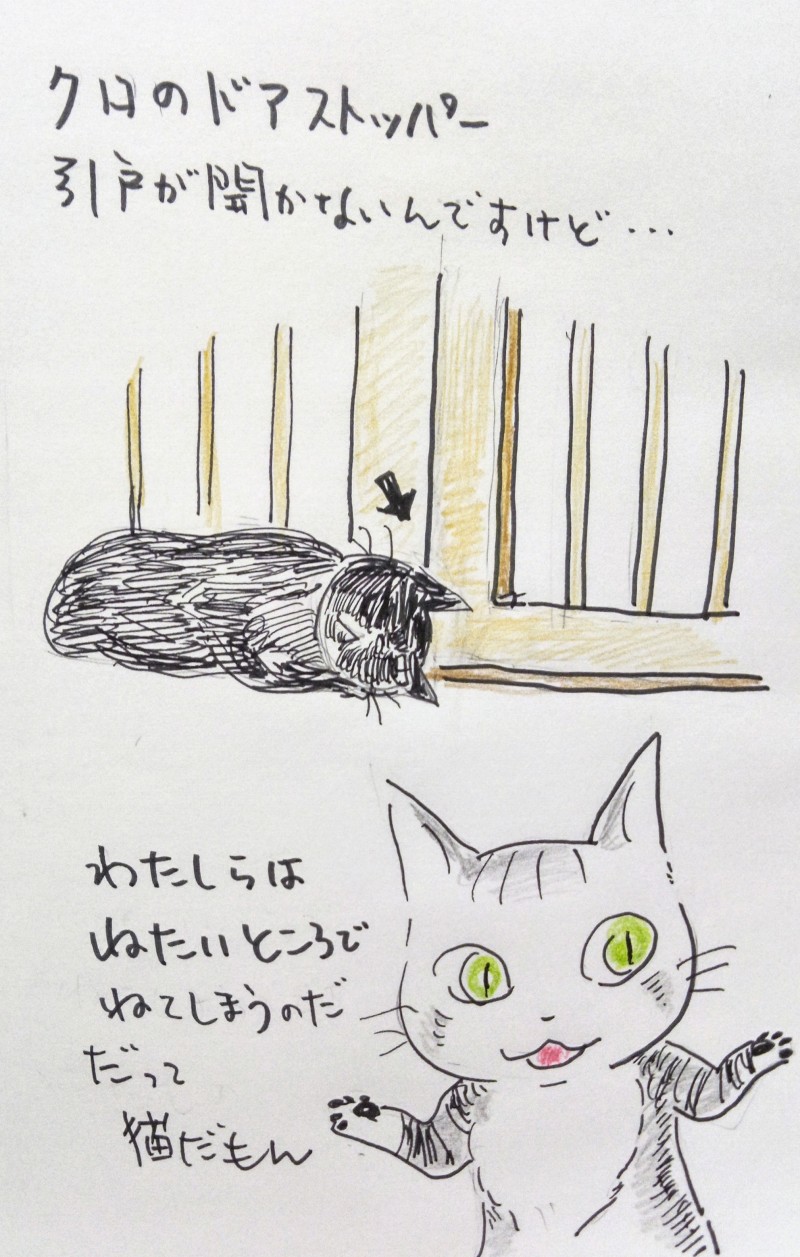 クロのドアストッパー
引戸が開かないんですけど…
わたしらは
ねたいところで
ねてしまうのだ
だって
猫だもん